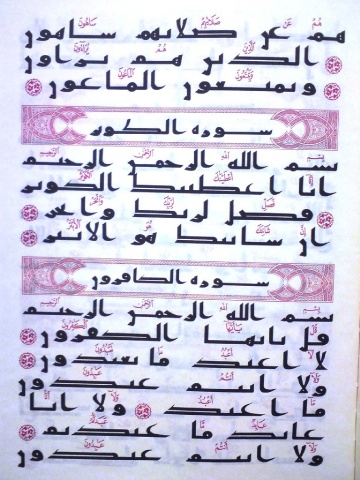 هم عن صلاتهم ساهون
الذين هم يراون
ويمنعون الماعون
سورة الكوثر
بسم الله الرحمن الرحيم
انا اعطينك الكوثر
فصل لربك وانحر
ان شانئك هو الابتر
سورة الكافرون
بسم الله الرحمن الرحيم
قل يايها الكفرون
لا اعبد ما تعبدون
ولا انتم عبدون
ما اعبد ولا انا
عابد ما عبدتم
ولا انتم عبدون